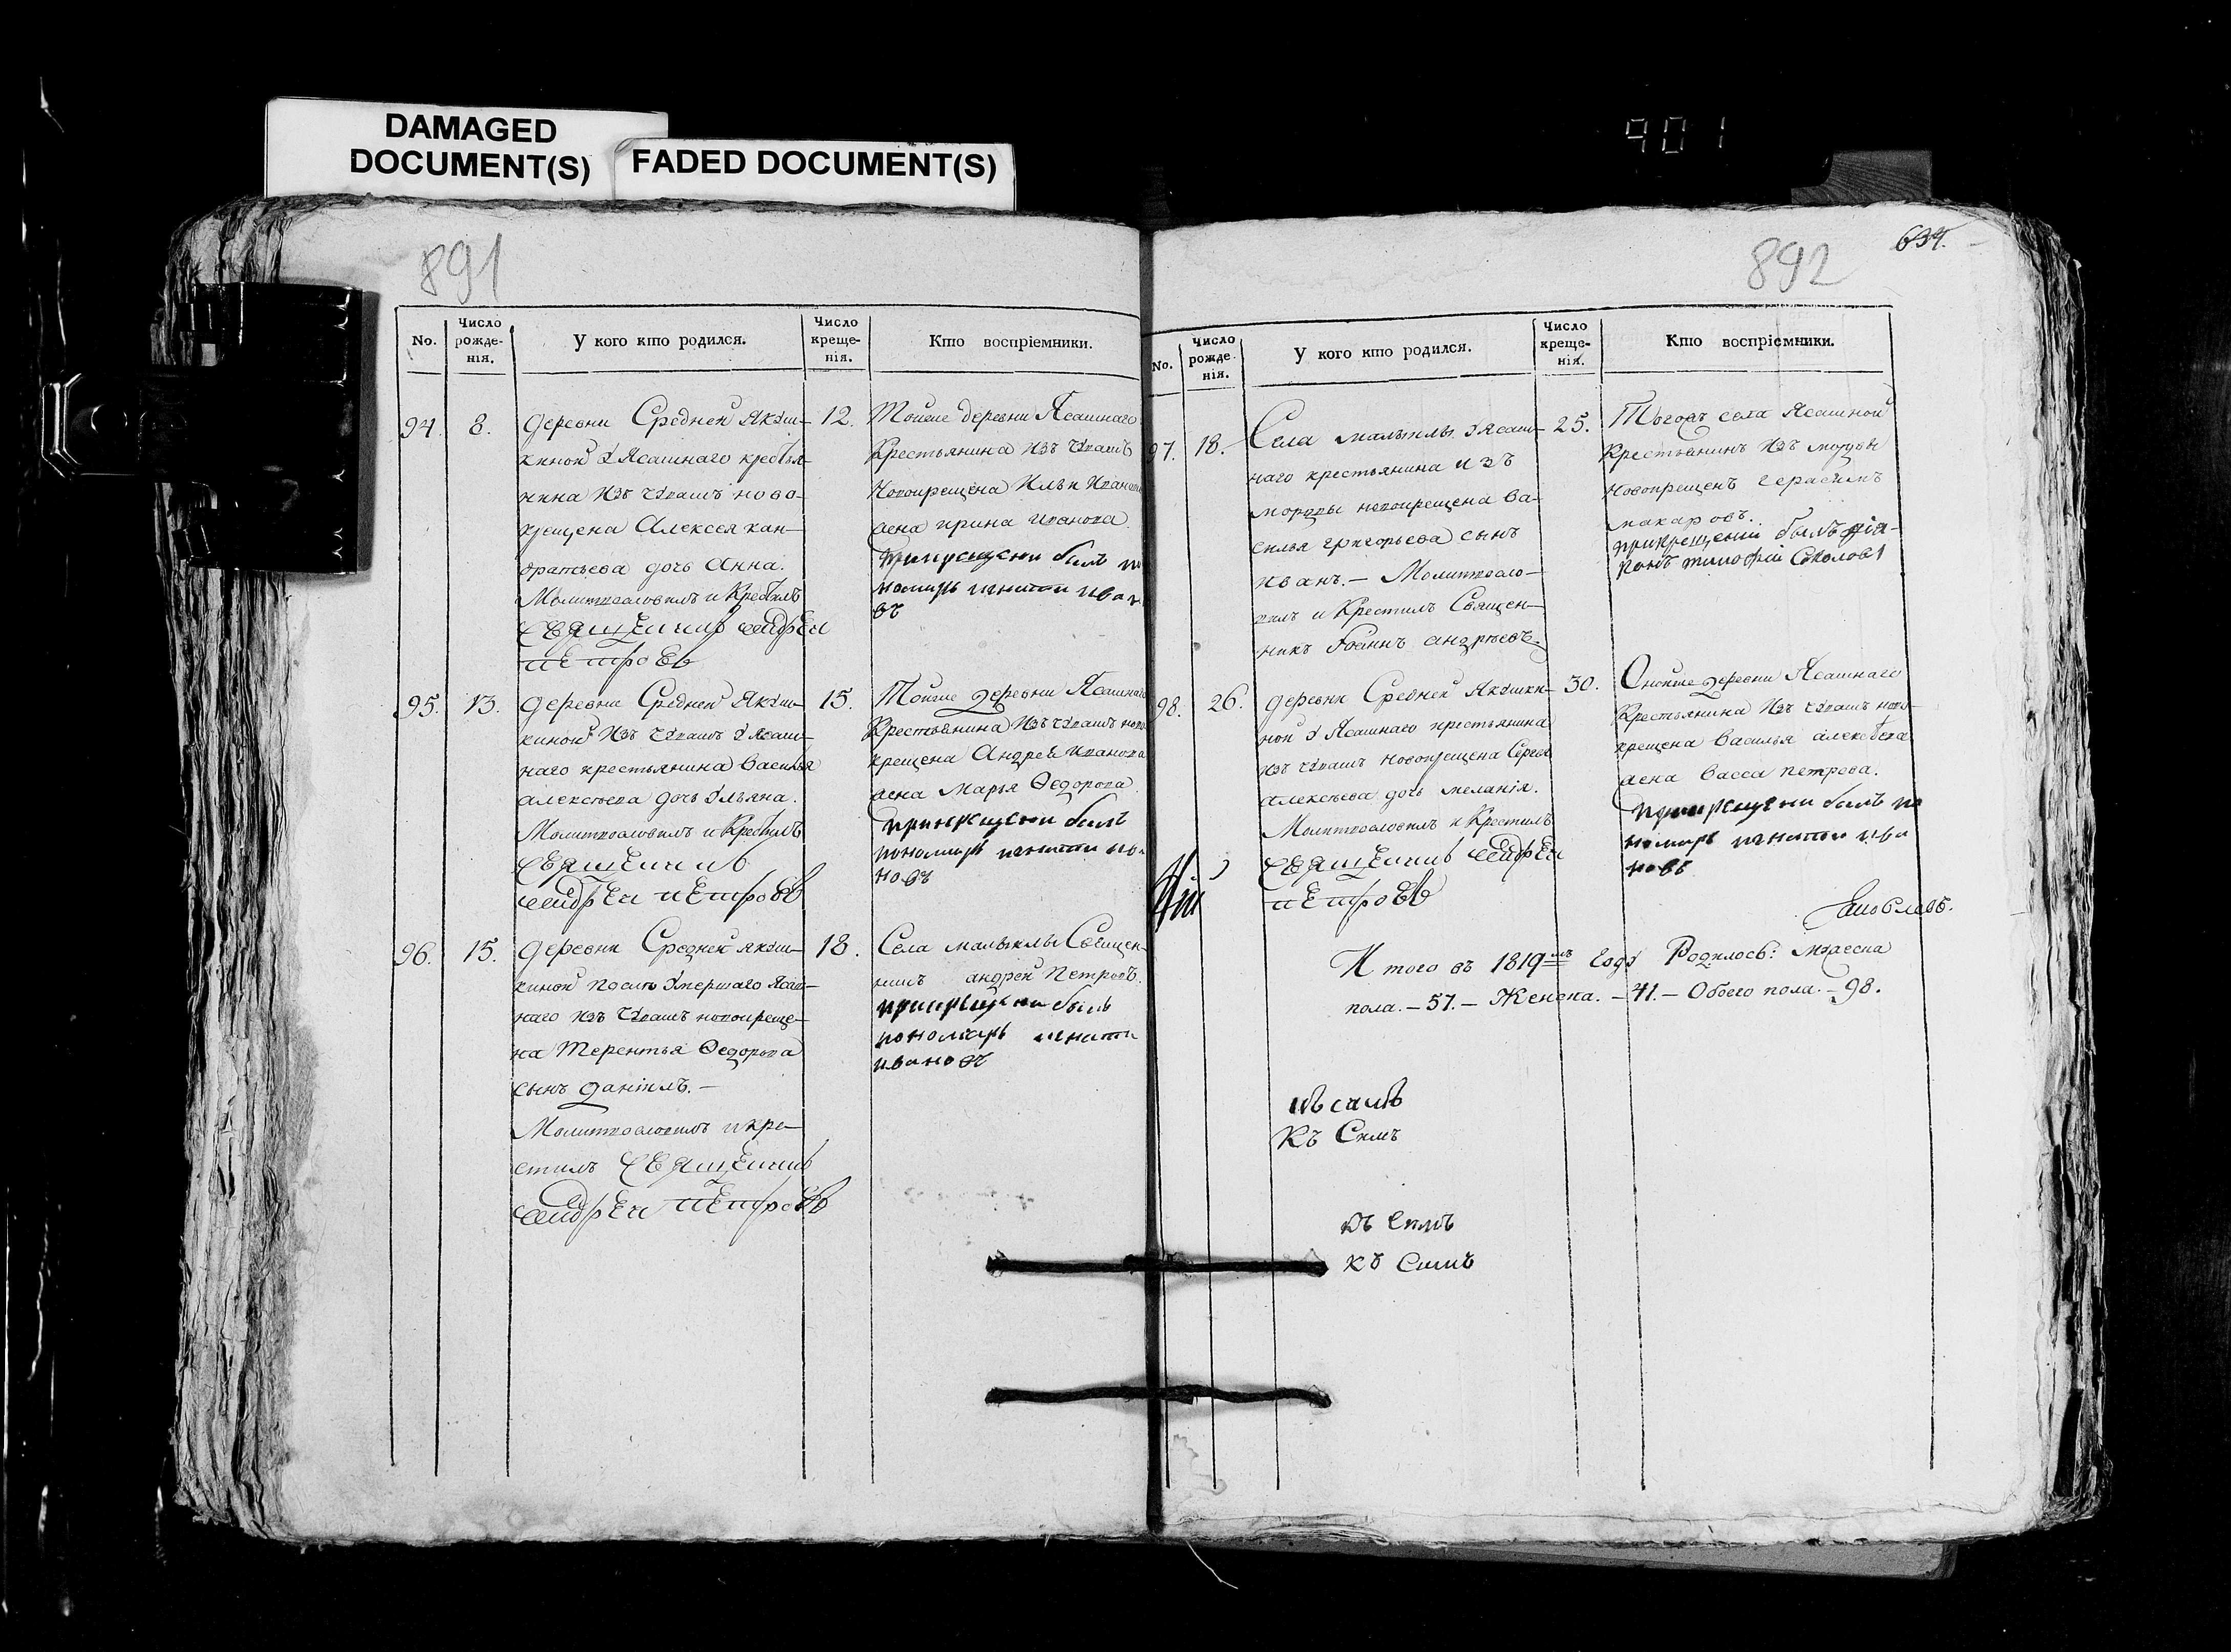 DAMAGED
DOCUMENT(S)
FADED DOCUMENT(S)
901
891
No.
Число
рожде-
нія.
У кого кто родился.
Число
креще-
нія.
Кто воспріемники.
94.
8.
деревни Средней Якуш-
киной у Ясашнаго крестья-
нина изъ чувашъ ново-
крещена Алексея кан-
дратьева дочь Анна.
Молитвословилъ и Крестилъ
священникъ андрей
петровъ
12.
Тойже деревни Ясашнаго
Крестьянина изъ чувашъ
новокрещена Ильи Иванова
жена ирина иванова.
прикрещении былъ по
номарь игнатий ива
въ
95.
13.
деревни Средней Якуш-
киной изъ чувашъ у Ясаш-
наго крестьянина василья
алексѣева дочь ульяна.
Молитвословилъ и Крестилъ
священникъ
андрей петровъ
15.
Тойже деревни Ясашнаго
Крестьянина изъ чувашъ ново
крещена Андрея иванова
жена Марья Ѳедорова.
прикрещении былъ
пономарь игнатий ива
новъ
96.
15.
деревни Средней якуш-
киной послѣ умершаго Ясаш-
наго изъ чувашъ новокреще-
на Терентья Ѳедорова
сынъ данiилъ.-
Молитвословилъ и кре-
стилъ священникъ
андрей петровъ
18.
Села малыклы Священ-
никъ андрей Петровъ.
прикрещении былъ
пономарь игнати
ивановъ
892
634.
No.
Число
рожде-
нія.
У кого кто родился.
Число
креще-
нія.
Кто воспріемники.
97.
18.
Села малыклы у ясаш-
наго крестьянина изъ
мордвы новокрещена ва-
силья григорьева сынъ
иванъ.- Молитвосло-
вилъ и Крестилъ Священ-
никъ Iоаннъ андрѣевъ.
25.
Тогожъ села Ясашной
Крестьянинъ изъ мордвы
новокрещенъ герасимъ
макаровъ.
прикрещении былъ дiя-
конъ тимофiй Соколовъ
98.
26.
деревни Средней Якушки-
ной у Ясашнаго крестьянина
изъ чувашъ новокрещена Сергея
алексѣева дочь меланiя.
Молитвословилъ и Крестилъ
священникъ андрей
петровъ
30.
Онойже деревни Ясашнаго
Крестьянина изъ чувашъ ново-
крещена василья алексѣева
жена васса петрова.
прикрещении былъ по
номарь игнатий ива
новъ
И того въ 1819мъ Году Родилось: мужеска
пола.-57.- Женска.-41.- Обоего пола.-98.
къ Симъ
къ Симъ